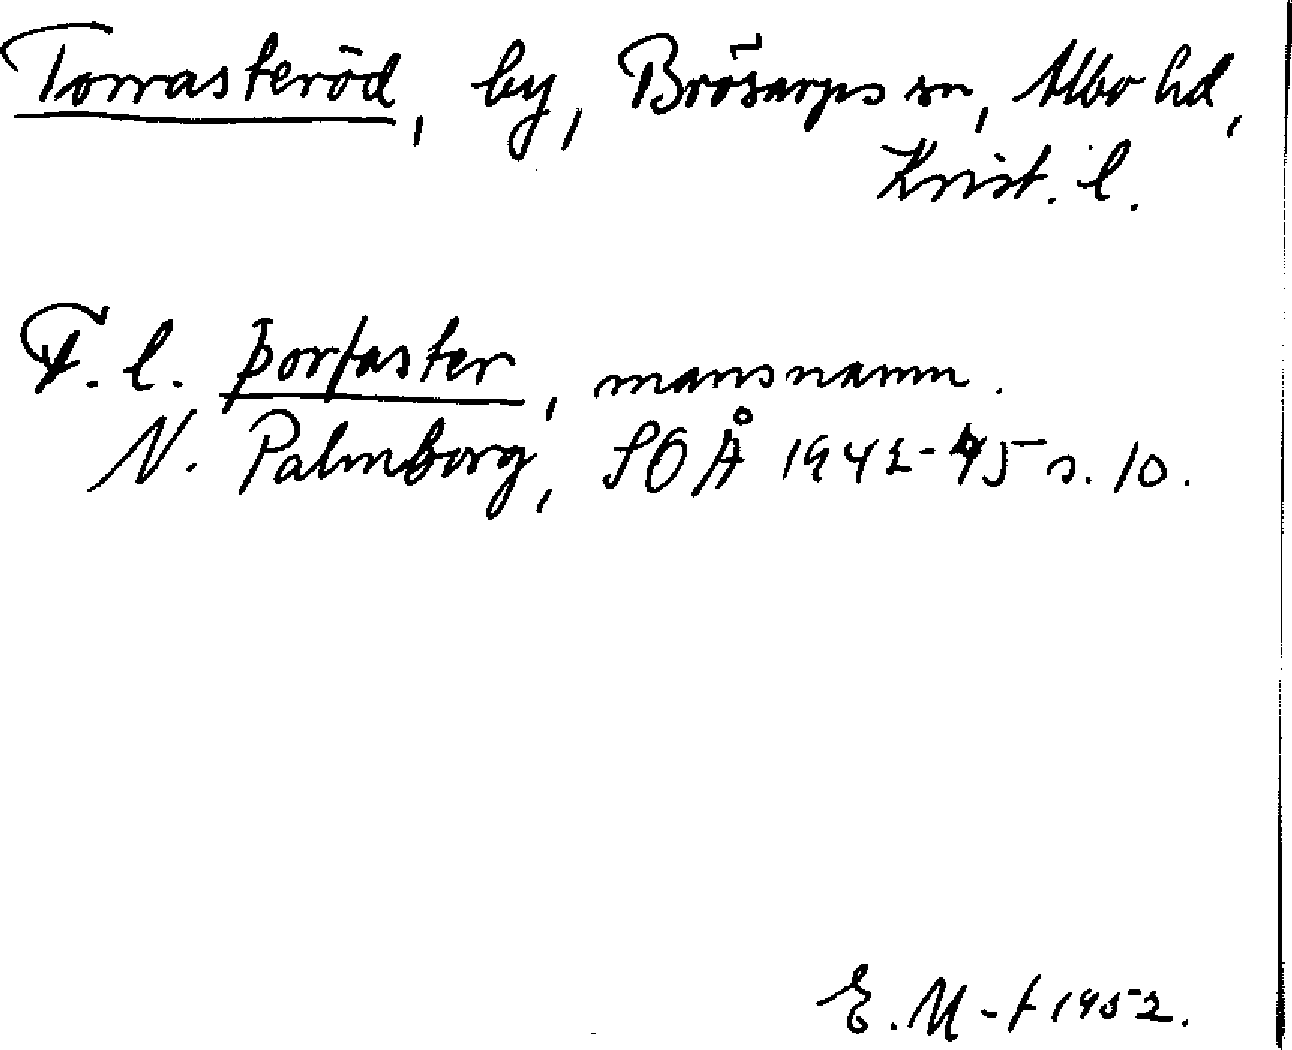 Torrasteröd, by, Brösarps sn, Albo hd,
Krist. l.
F. l. þorfaster, mansnamn.
N. Palmborg, SOÅ 1942-45 s. 10.
E. M-t 1952.